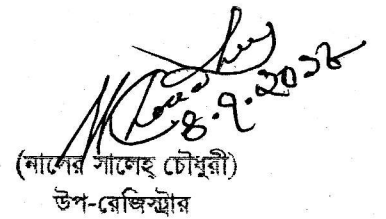 ৪.৭.২০১৮
(নাসের সালেহ্ চৌধুরী)
উপ-রেজিস্ট্রার